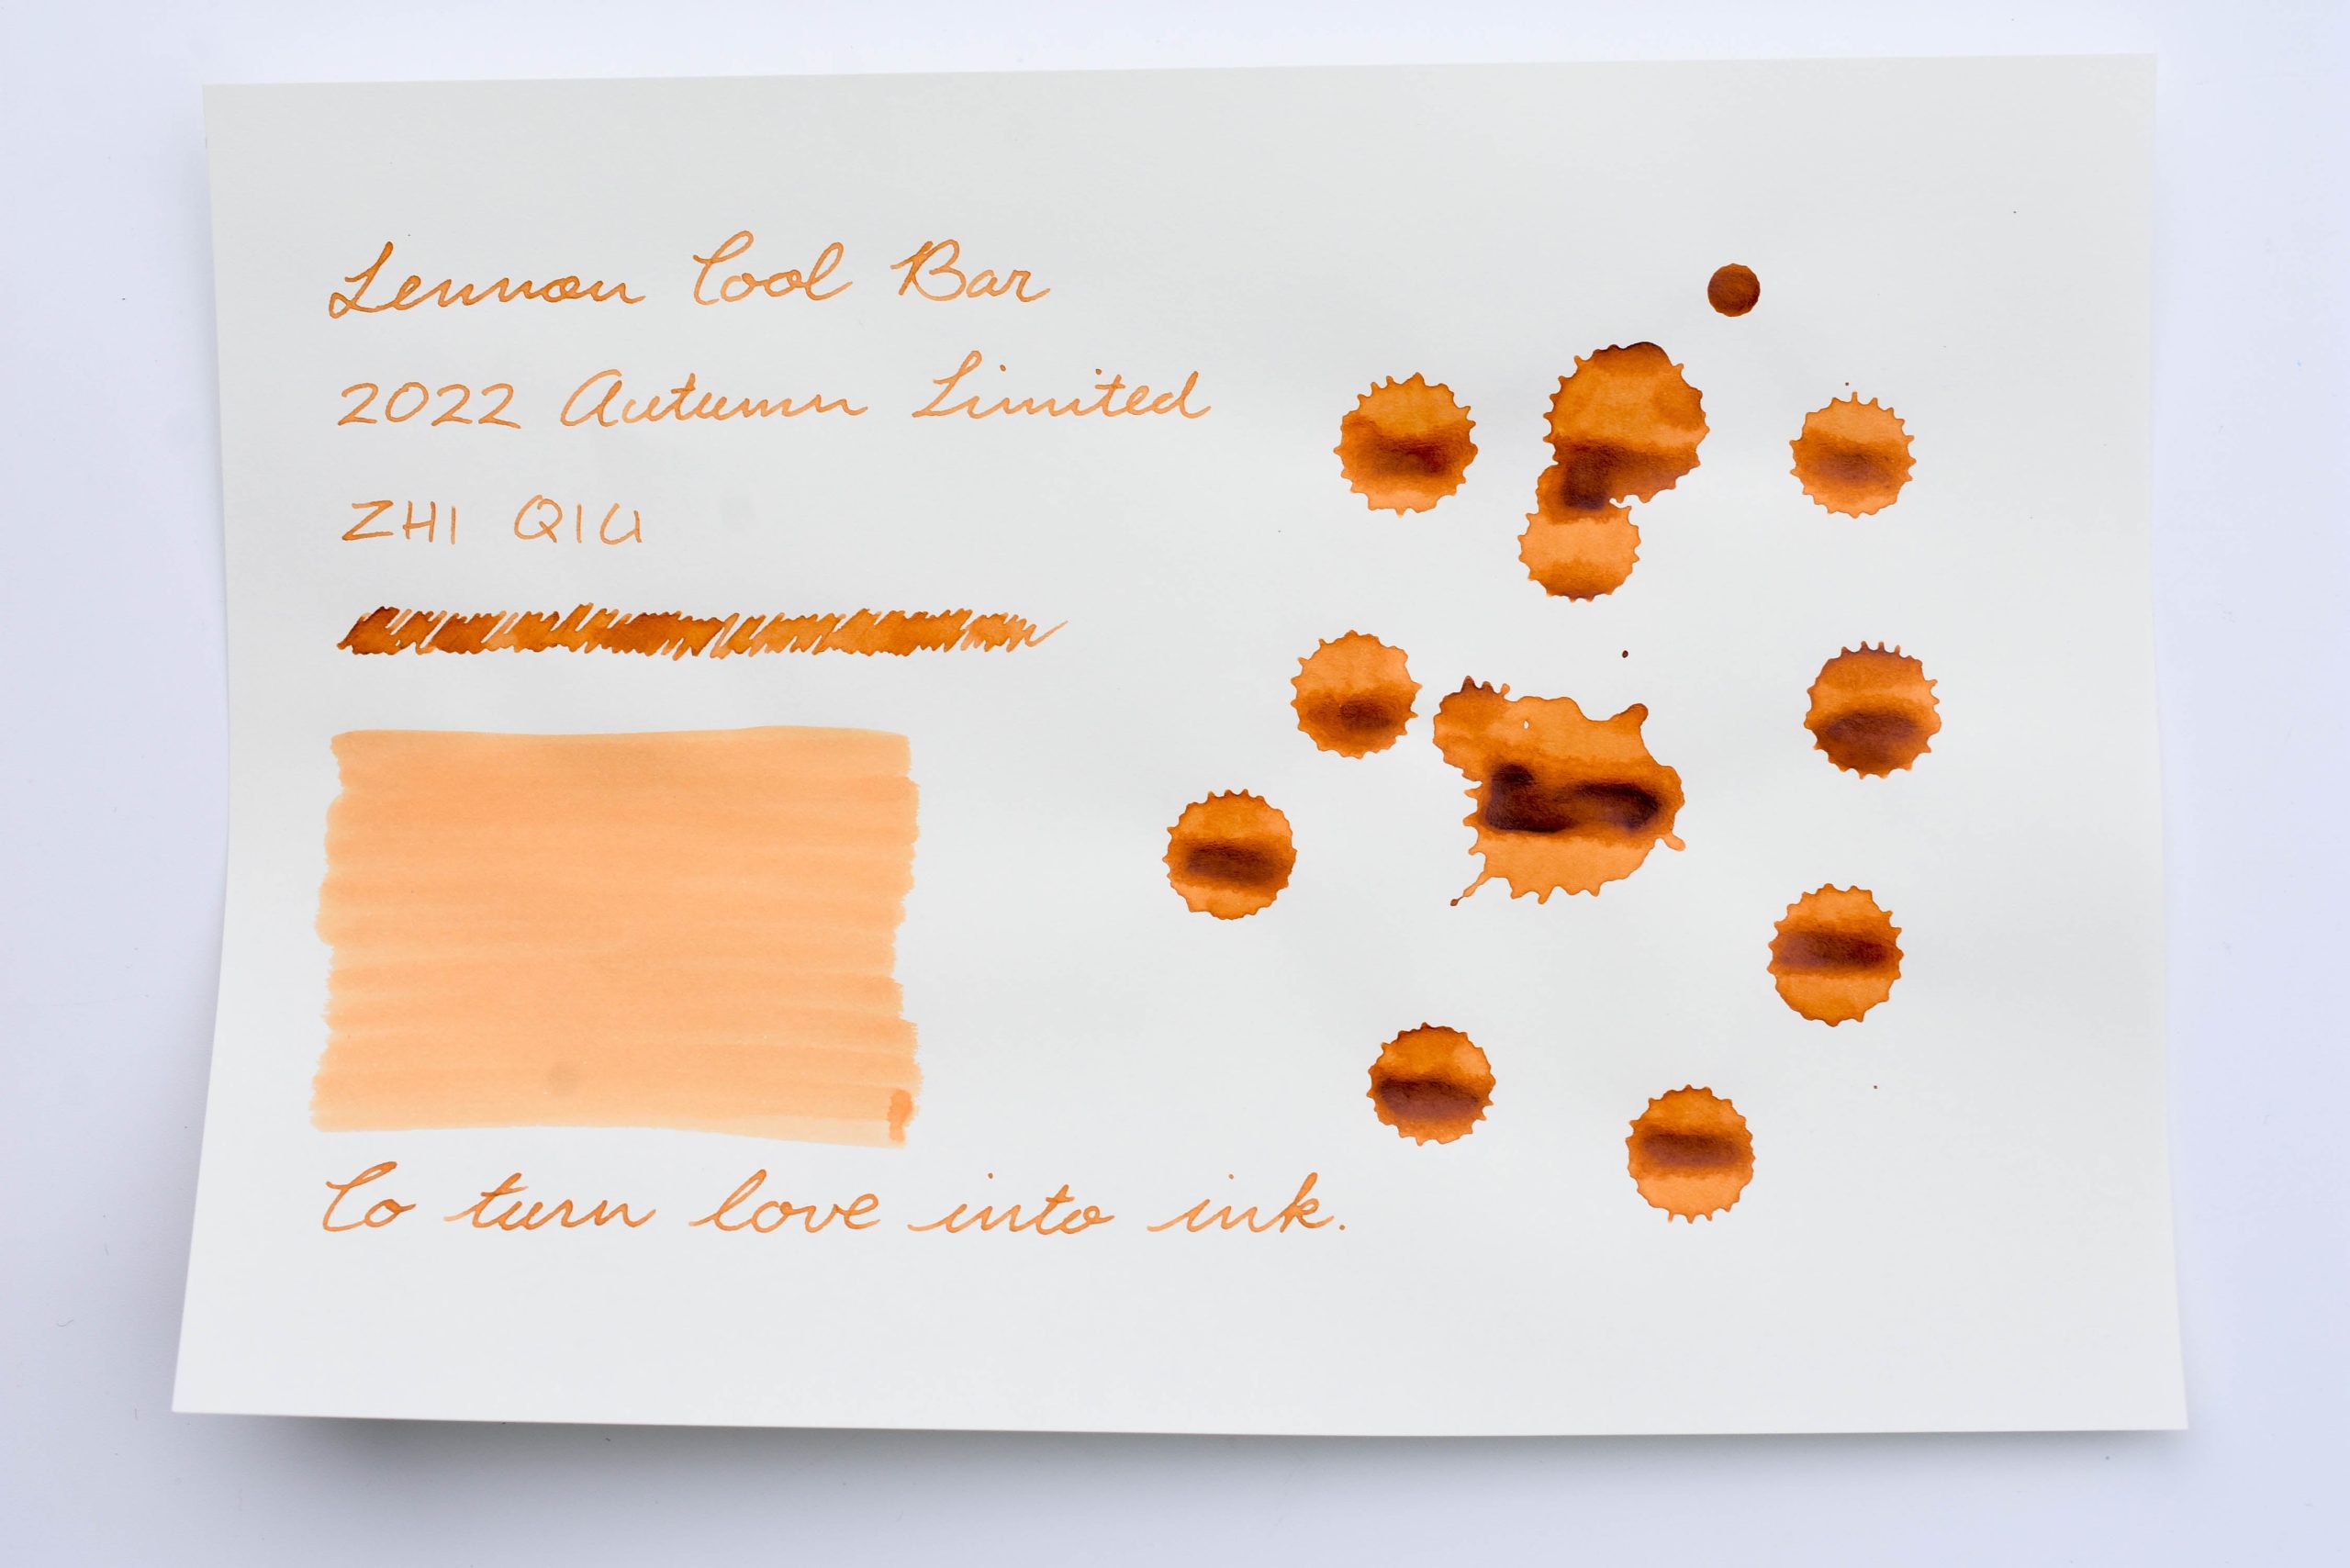 Lennon Tool Bar
2022 Autumn Limited
ZHI QIU
To turn love into ink.